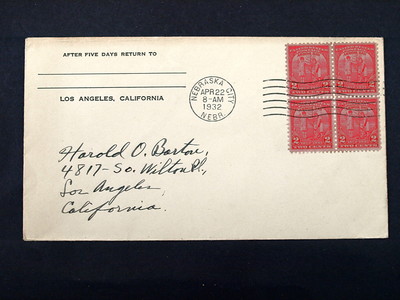 AFTER FIVE DAYS RETURN TO
LOS ANGELES, CALIFORNIA
NEBRASKA CITY
APR 22
8-AM
1932
NEBR.
2 2
2 2
Harold O. Barton,
4817-So. Wilton Pl.,
Los Angeles,
California.